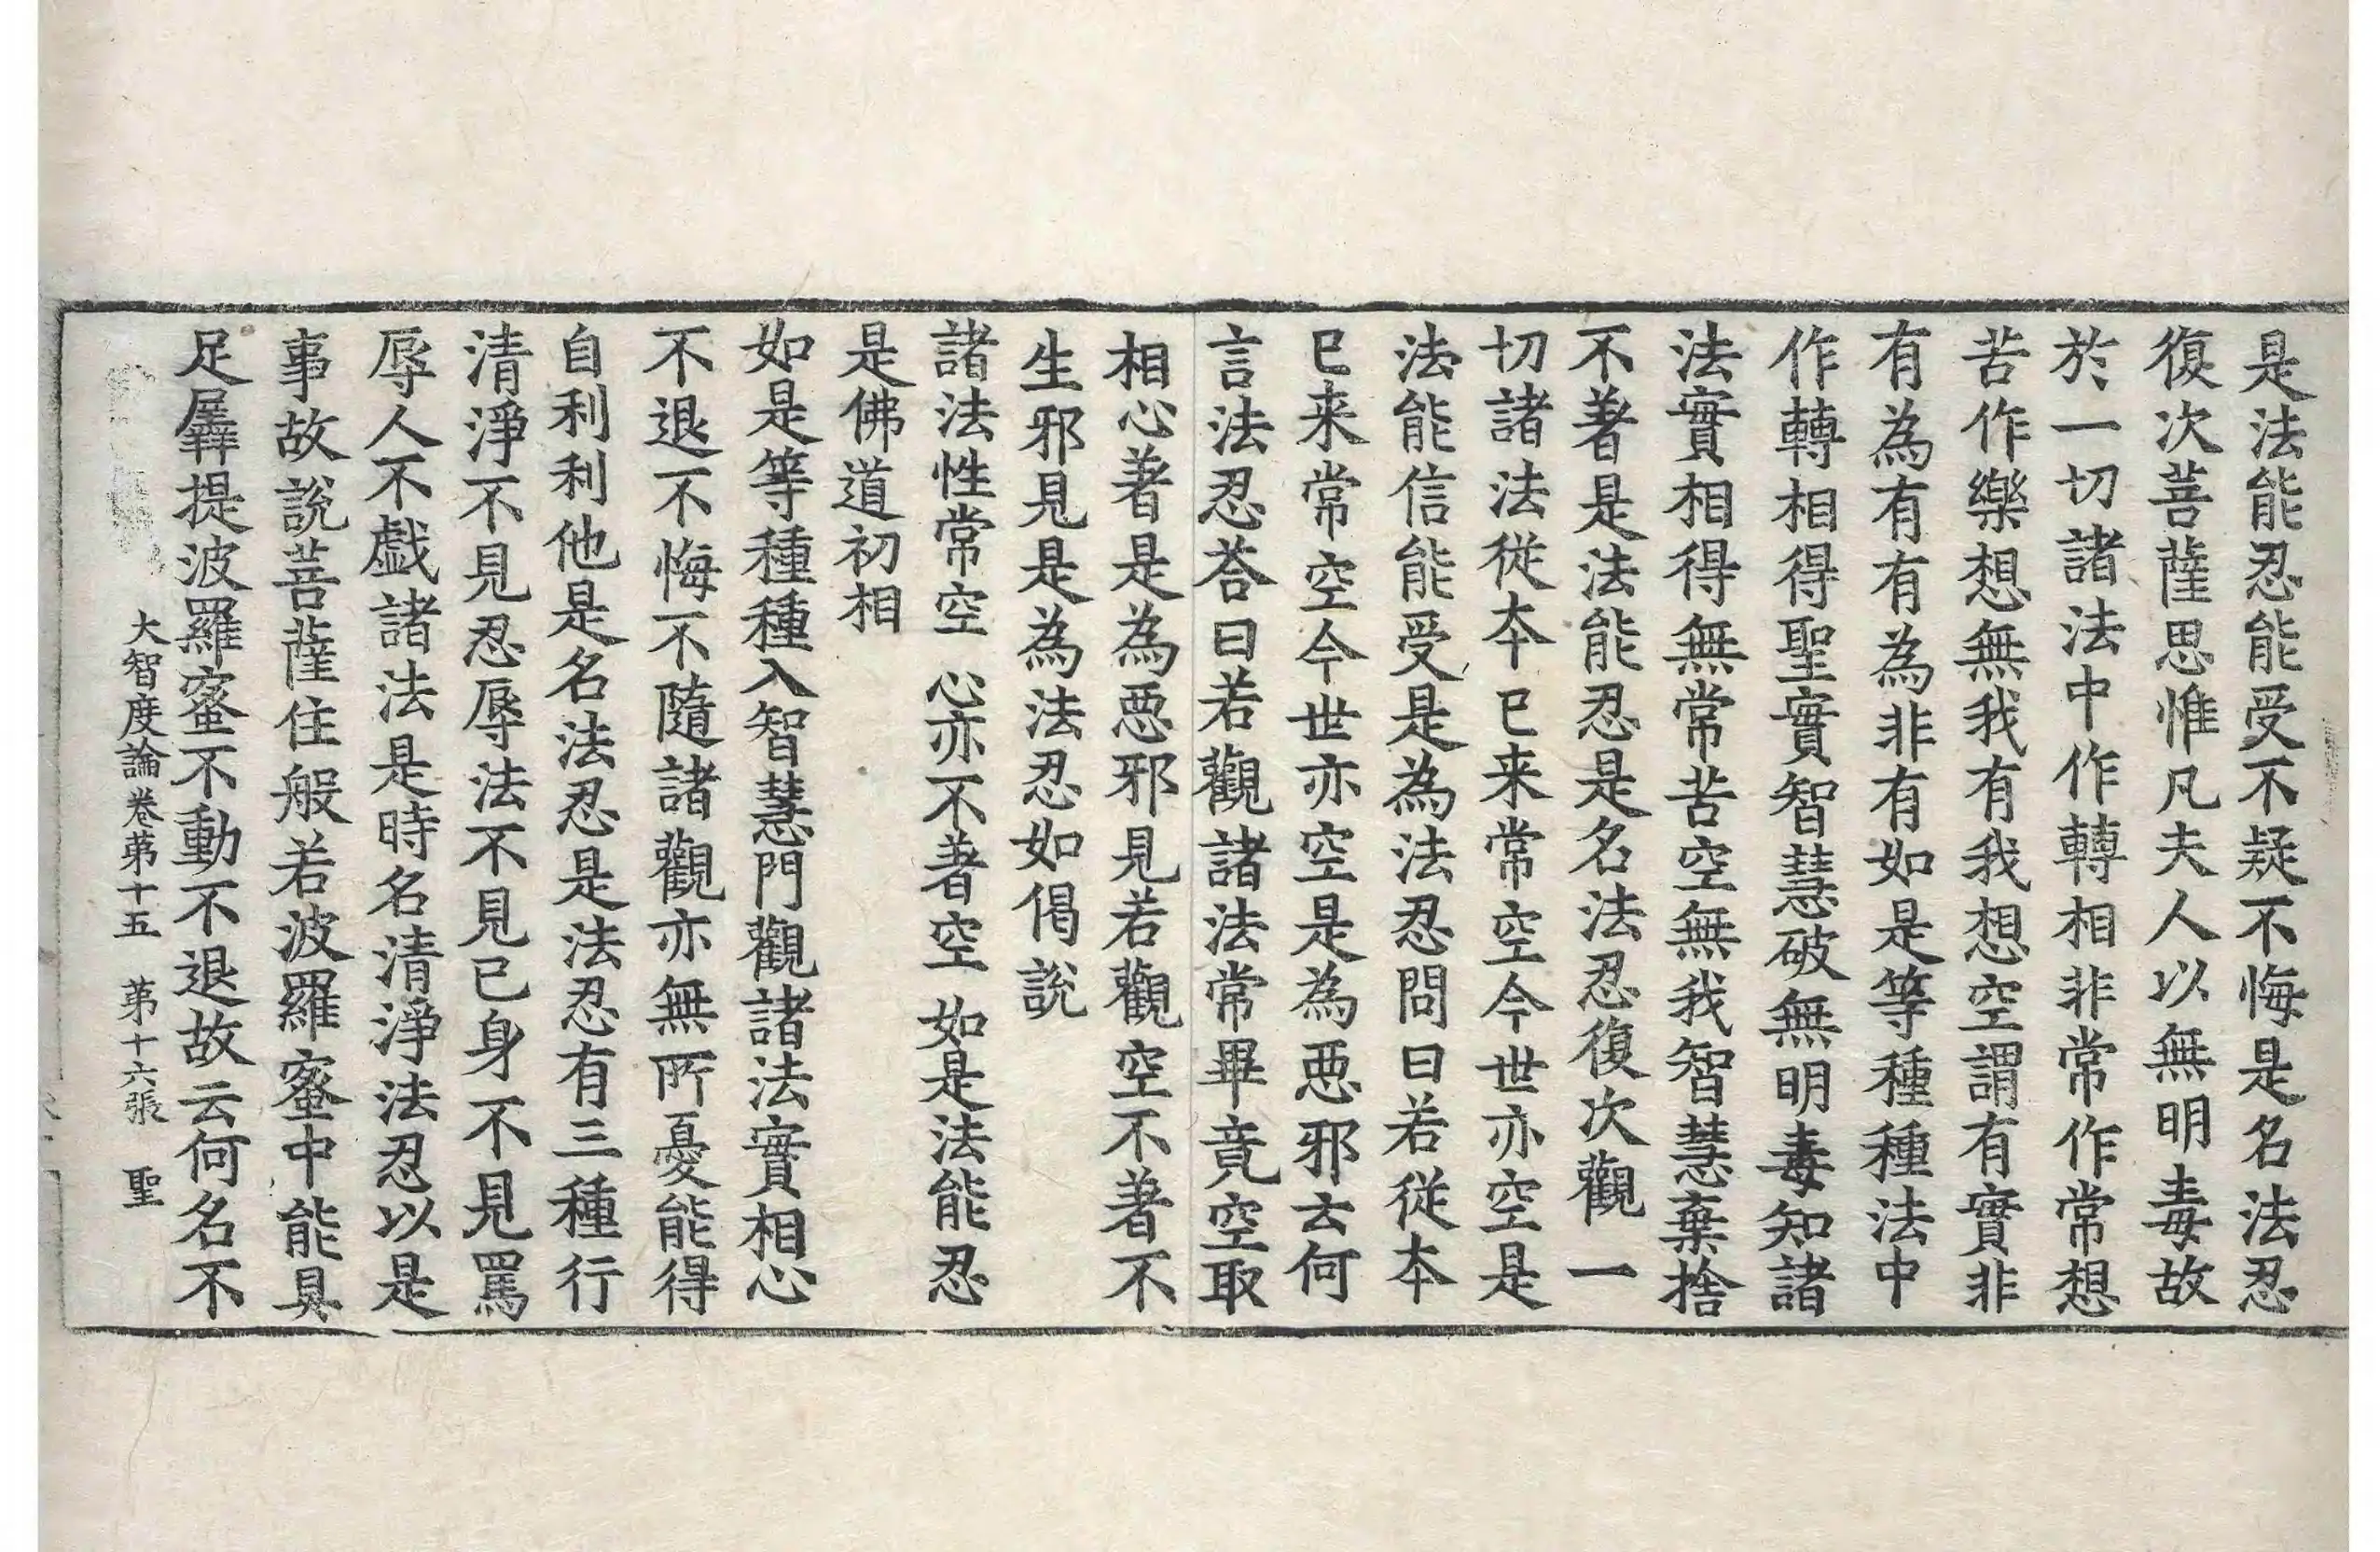 是法能忍能受不疑不悔是名法忍
復次菩薩思惟凡夫人以無明毒故
於一切諸法中作轉相非常作常想
苦作樂想無我有我想空謂有實非
有為有有為非有如是等種種法中
作轉相得聖實智慧破無明毒知諸
法實相得無常苦空無我智慧棄捨
不著是法能忍是名法忍復次觀一
切諸法從夲已来常空今世亦空是
法能信能受是為法忍問曰若從夲
已来常空今世亦空是為惡邪云何
言法忍荅曰若觀諸法常畢竟空取
相心著是為惡邪見若觀空不著不
生邪見是為法忍如偈說
諸法性常空 心亦不著空 如是法能忍
是佛道初相
如是等種種入智慧門觀諸法實相心
不退不悔不隨諸觀亦無所憂能得
自利利他是名法忍是法忍有三種行
清淨不見忍辱法不見己身不見罵
辱人不戲諸法是時名清淨法忍以是
事故說菩薩住般若波羅蜜中能具
足羼提波羅蜜不動不退故云何名不
大智度論卷苐十五 苐十六張 聖